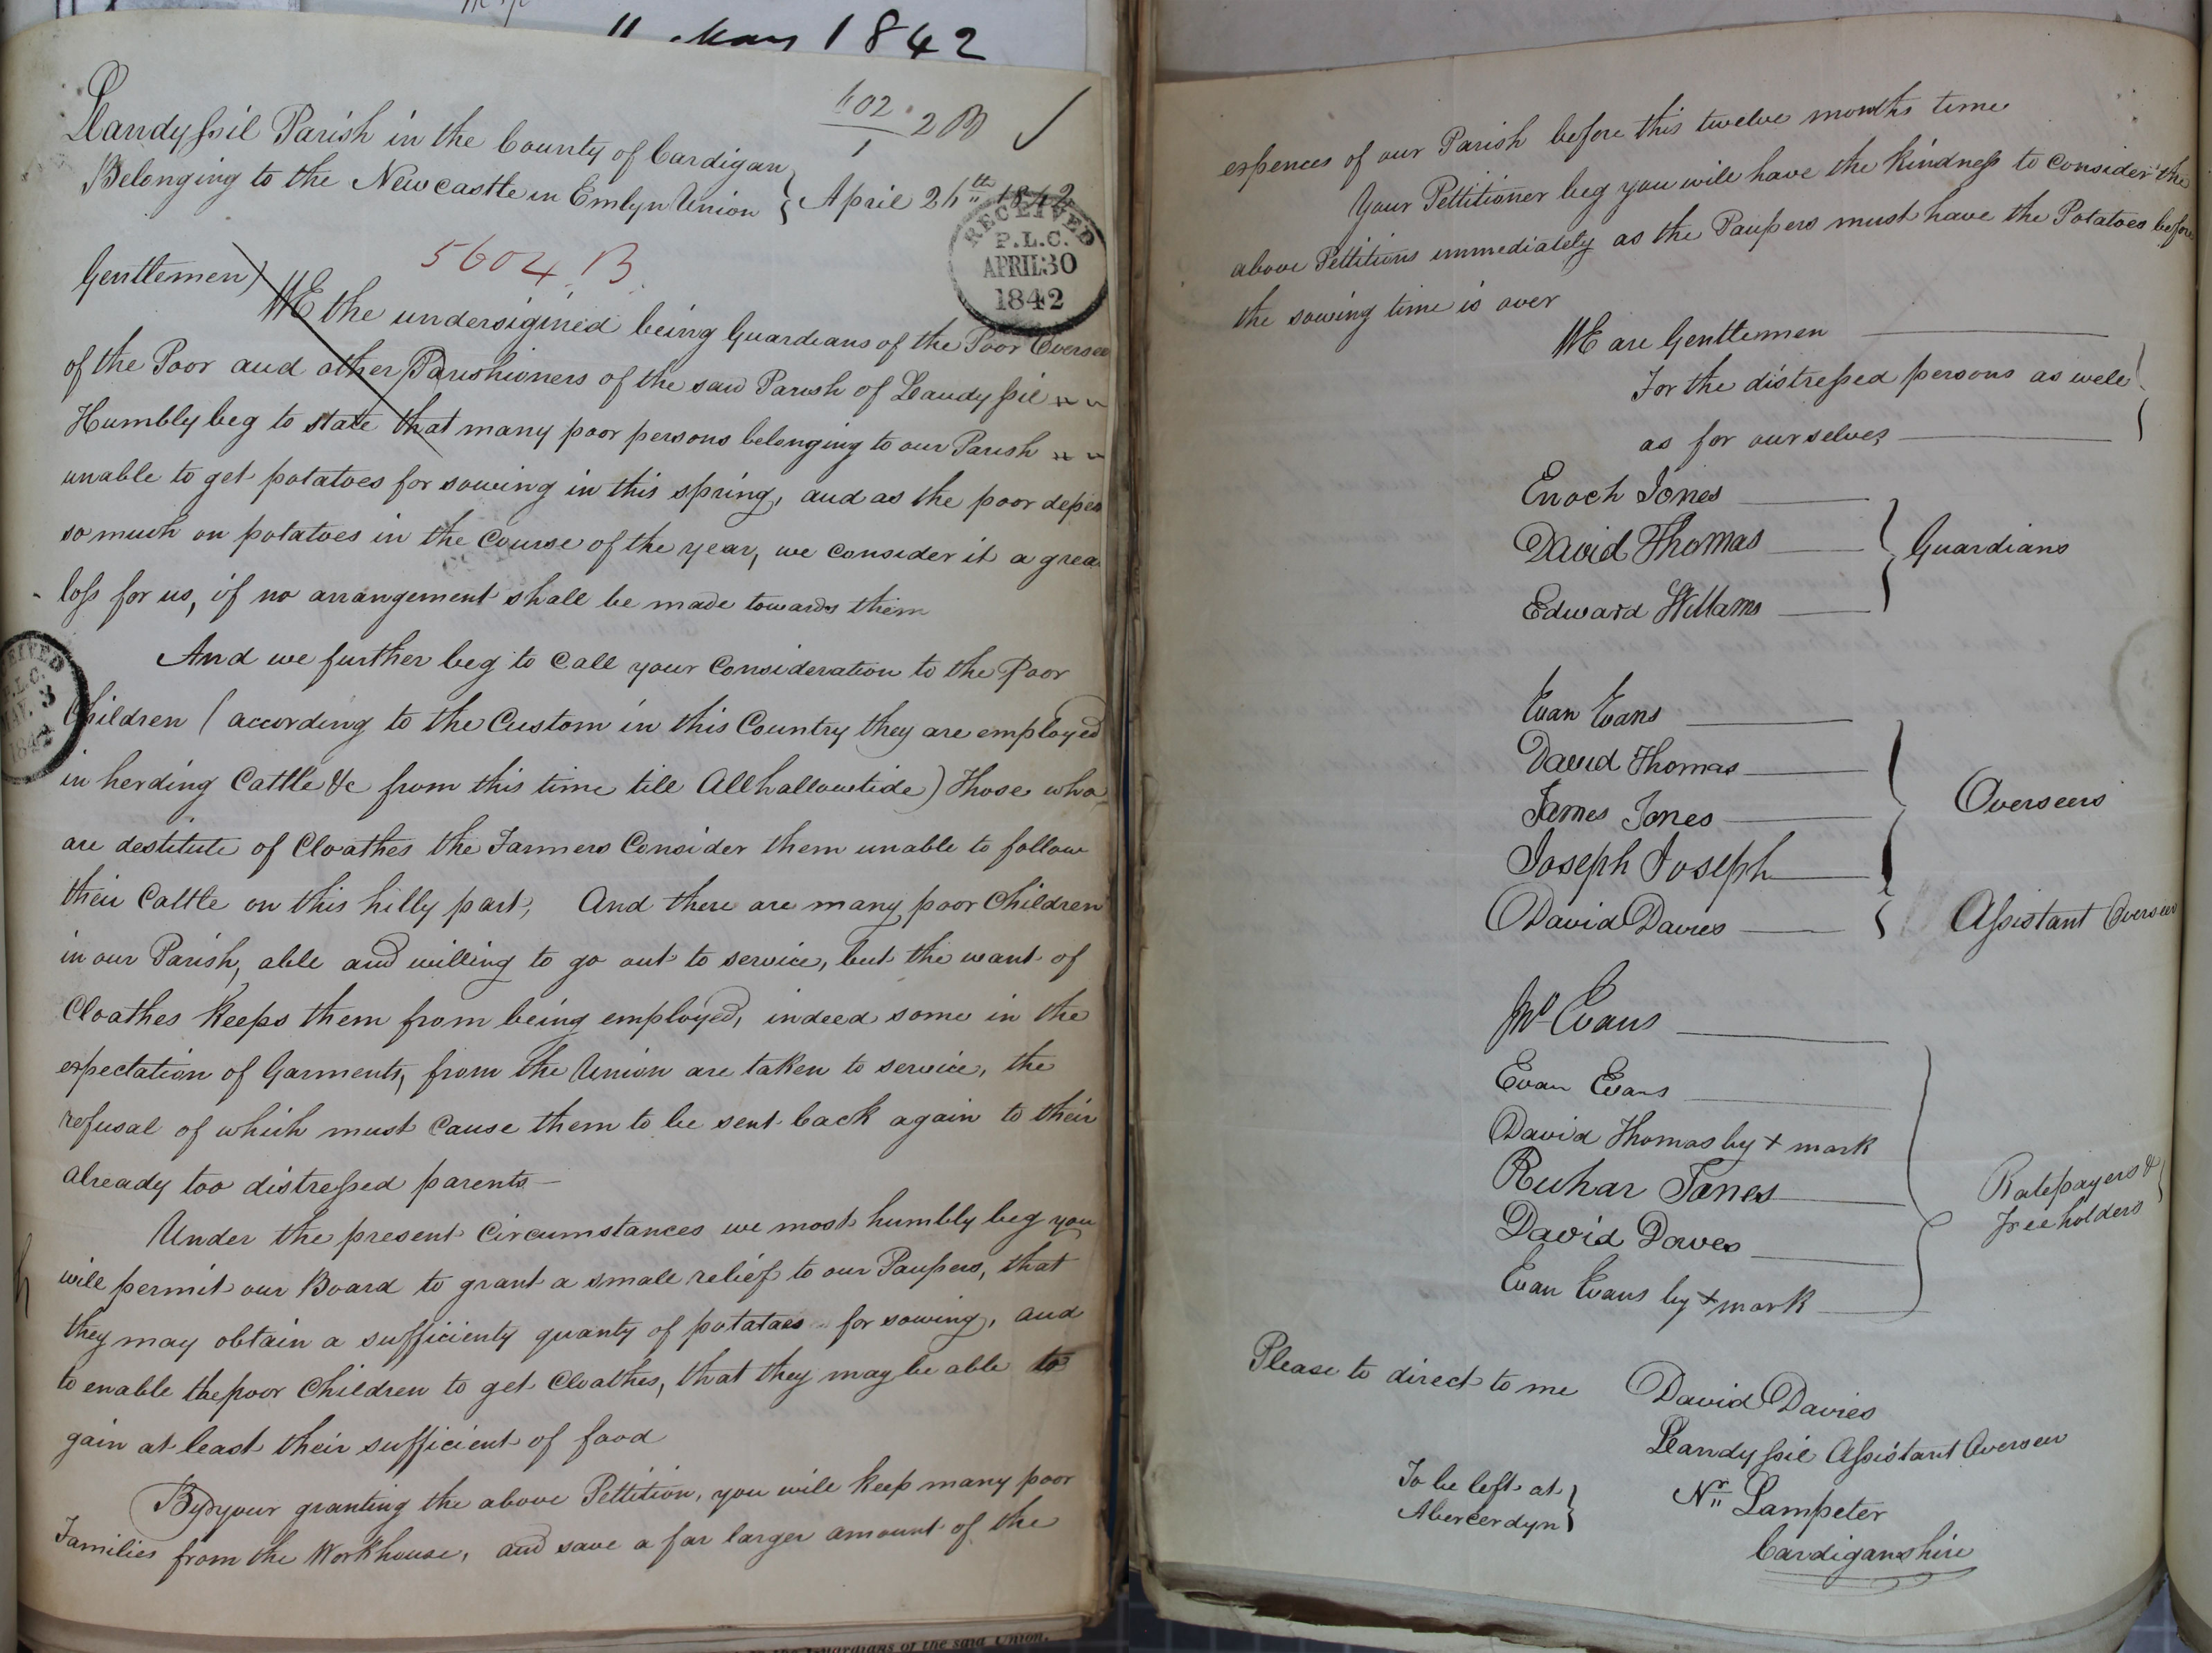 11 May 1842
602
1
2 B
Llandyssil Parish in the County of Cardigan
Belonging to the Newcastle in Emlyn Union } April 26th 1842
RECEIVED
P.L.C.
APRIL 30
1842
5604 B
Gentlemen)
WE the undersigined being Guardians of the Poor Oversee
of the Poor and other Parishioners of the said Parish of Llandyssil
Humbly beg to state that many poor persons belonging to our Parish
unable to get potatoes for sowing in this spring, and as the poor depen
so much on potatoes in the Course of the year, we consider it a grea
loss for us, if no arrangement shall be made towards them
And we further beg to Call your Consideration to the Poor
RECEIVED
P.L.C.
MAY 3
1842
Children (according to the Custom in this Country they are employed
in herding Cattle &c from this time till Allhallowtide) Those who
are destitute of Cloathes the Farmers Consider them unable to follow
their Cattle on this hilly part, And there are many poor Children
in our Parish, able and willing to go out to service, but the want of
Cloathes keeps them from being employed, indeed some in the
expectation of Garments, from the Union are taken to service, the
refusal of which must Cause them to be sent back again to their
already too distressed parents—
Under the present Circumstances we most humbly beg you
will permit our Board to grant a small relief to our Paupers, that
they may obtain a sufficienty quanty of potatoes for sowing, and
to enable the poor Children to get Cloathes, that they may be able to
gain at least their sufficient of food
By your granting the above Pettition, you will keep many poor
Families from the Workhouse, and save a far larger amount of the
Guardians of the said Union.
expences of our Parish before this twelve months time
Your Pettitioner beg you will have the kindness to Consider the
above Pettitions immediately as the Paupers must have the Potatoes before
the sowing time is over
WE are Gentlemen
For the distressed persons as well
as for ourselves
Enoch Jones
David Thomas } Guardians
Edward Willams
Evan Evans
David Thomas
James Jones } Overseers
Joseph Joseph
David Davies { Assistant Overseer
Jno Evans
Evan Evans
David Thomas by + mark
Ruhar Jones
Ratepayers &
Freeholders
David Daves
Evan Evans by + mark
Please to direct to me David Davies
Llandyssil Assistant Overseer
To be left at
Abercerdyn } Nr Lampeter
Cardiganshire